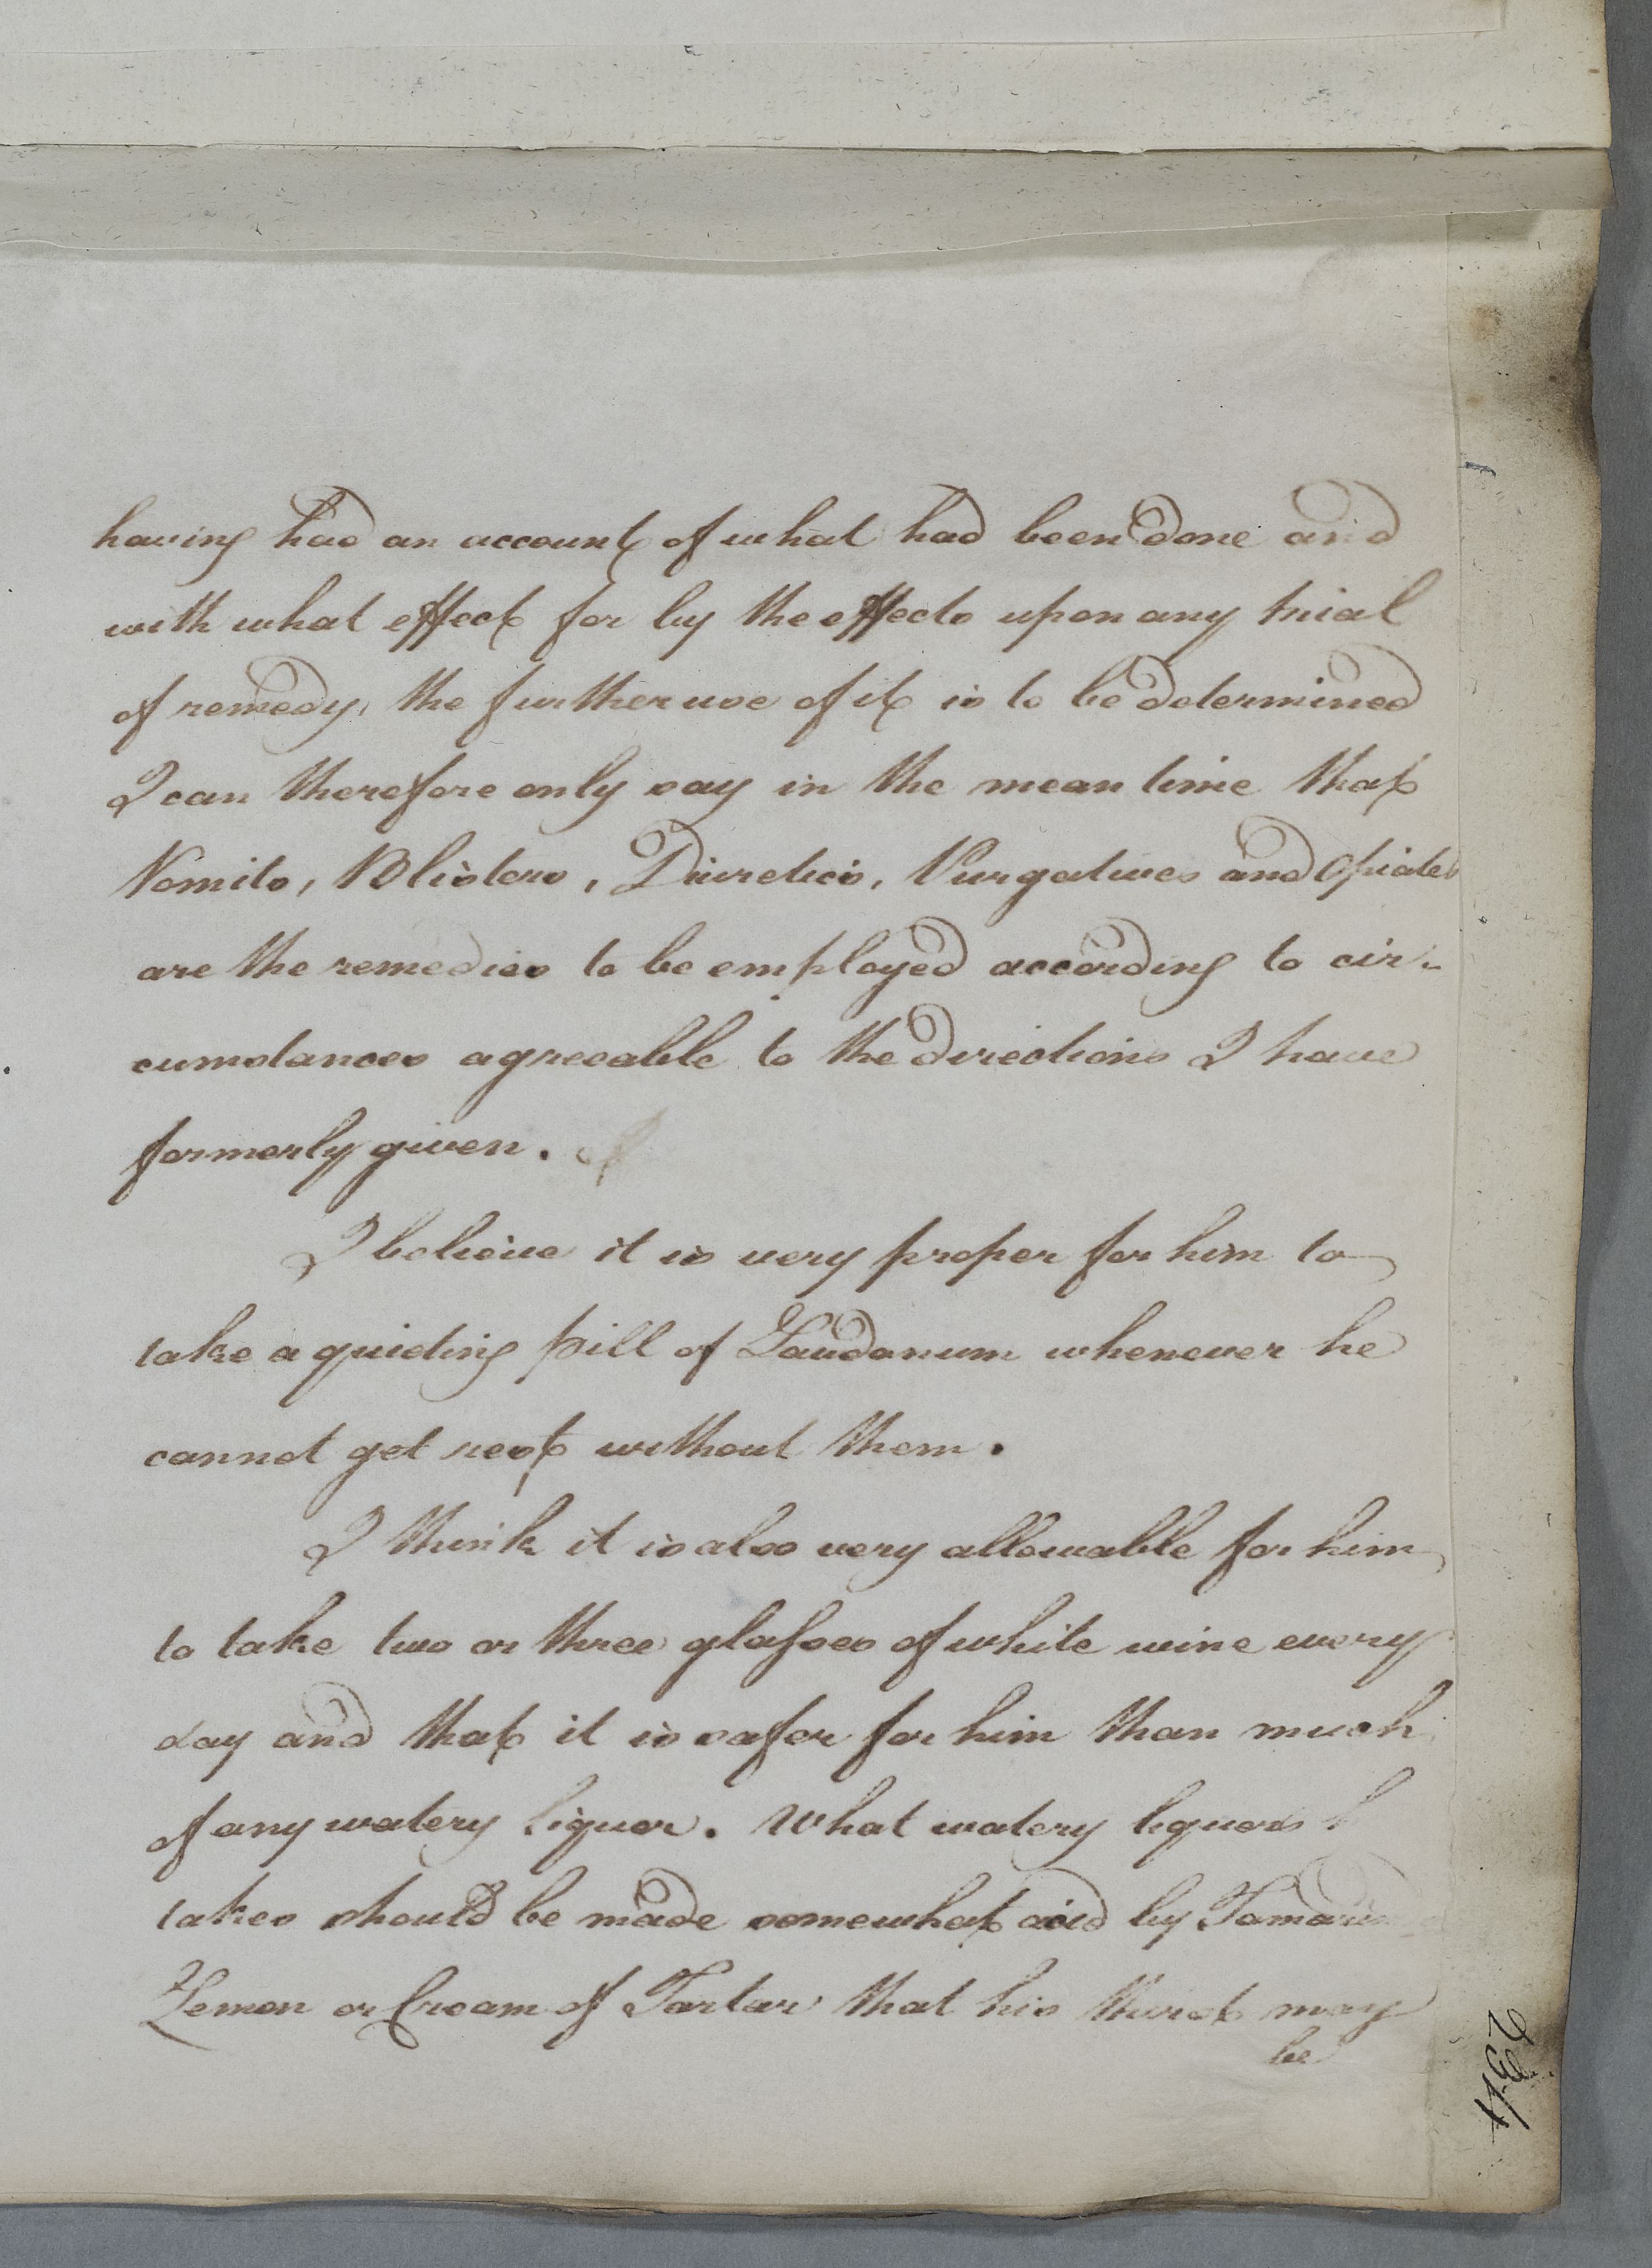 having had an account of what had been done and
with what effect for by the effects upon any trial
of remedy, the further use of it is to be determined
I can therefore only say in the mean time that
Vomits, Blisters, Diuretics, Purgatives and Opiates
are the remedies to be employed according to cir-
cumstances agreeable to the directions I have
formerly given.
I believe it is very proper for him to
take a quieting pill of Laudanum whenever he
cannot get rest without them.
I think it is also very allowable for him
to take two or three glasses of white wine every
day and that it is safer for him than much
of any watery liquor. What watery liquors
takes should be made somewhat acid by
Lemon or Cream of Tartar that his thirst may
be
234